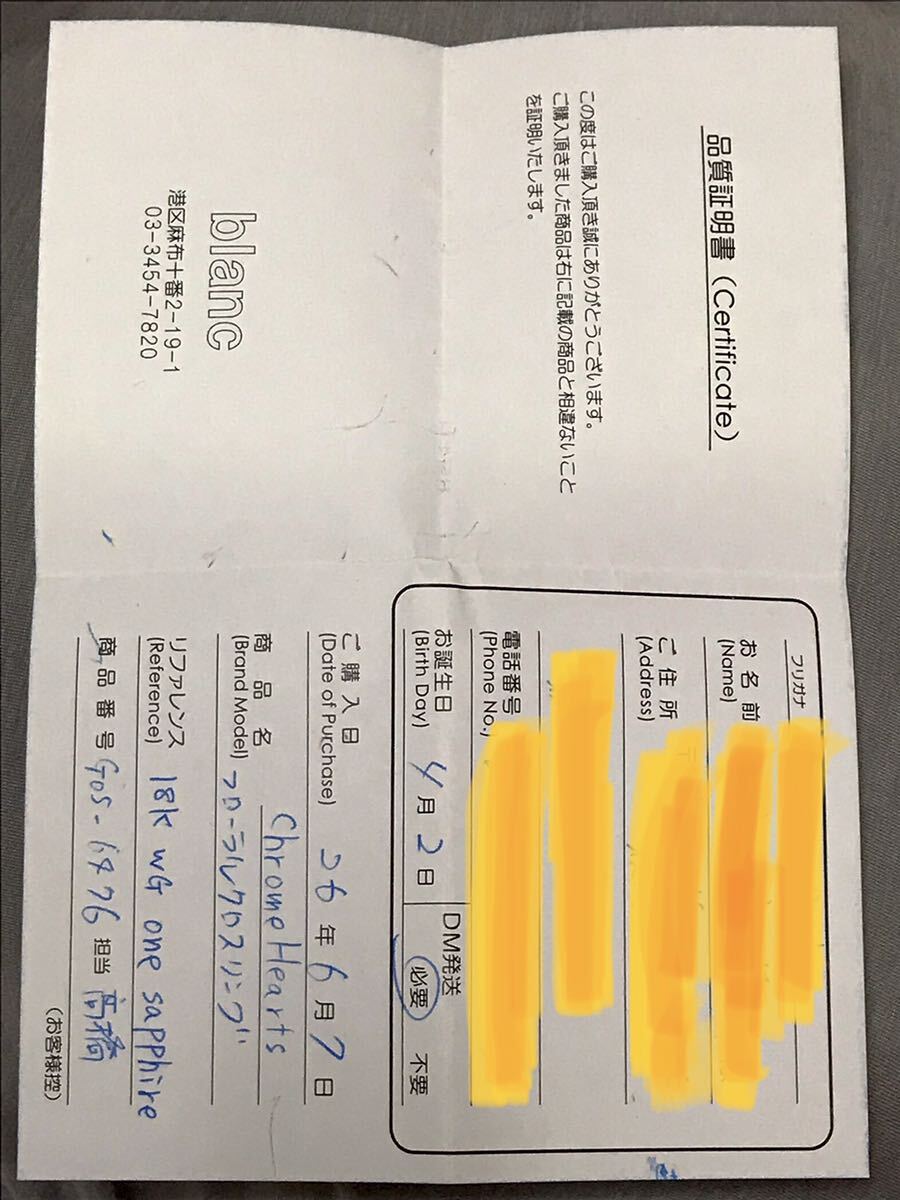 品質証明書 (Certificate)
この度はご購入頂き誠にありがとうございます。
ご購入頂きました商品は右に記載の商品と相違ないこと
を証明いたします。
blanc
港区麻布十番2-19-1
03-3454-7820
フリガナ
お名前
(Name)
ご住所
(Address)
電話番号
(Phone No.)
お誕生日
(Birth Day) 4月2日
DM発送
必要 不要
ご購入日
(Date of Purchase) 26年6月7日
商品名 Chrome Hearts
(Brand Model) フローラルクロスリング
リファレンス
(Reference) 18k WG one sapphire
商品番号 担当 高橋
(お客様控)